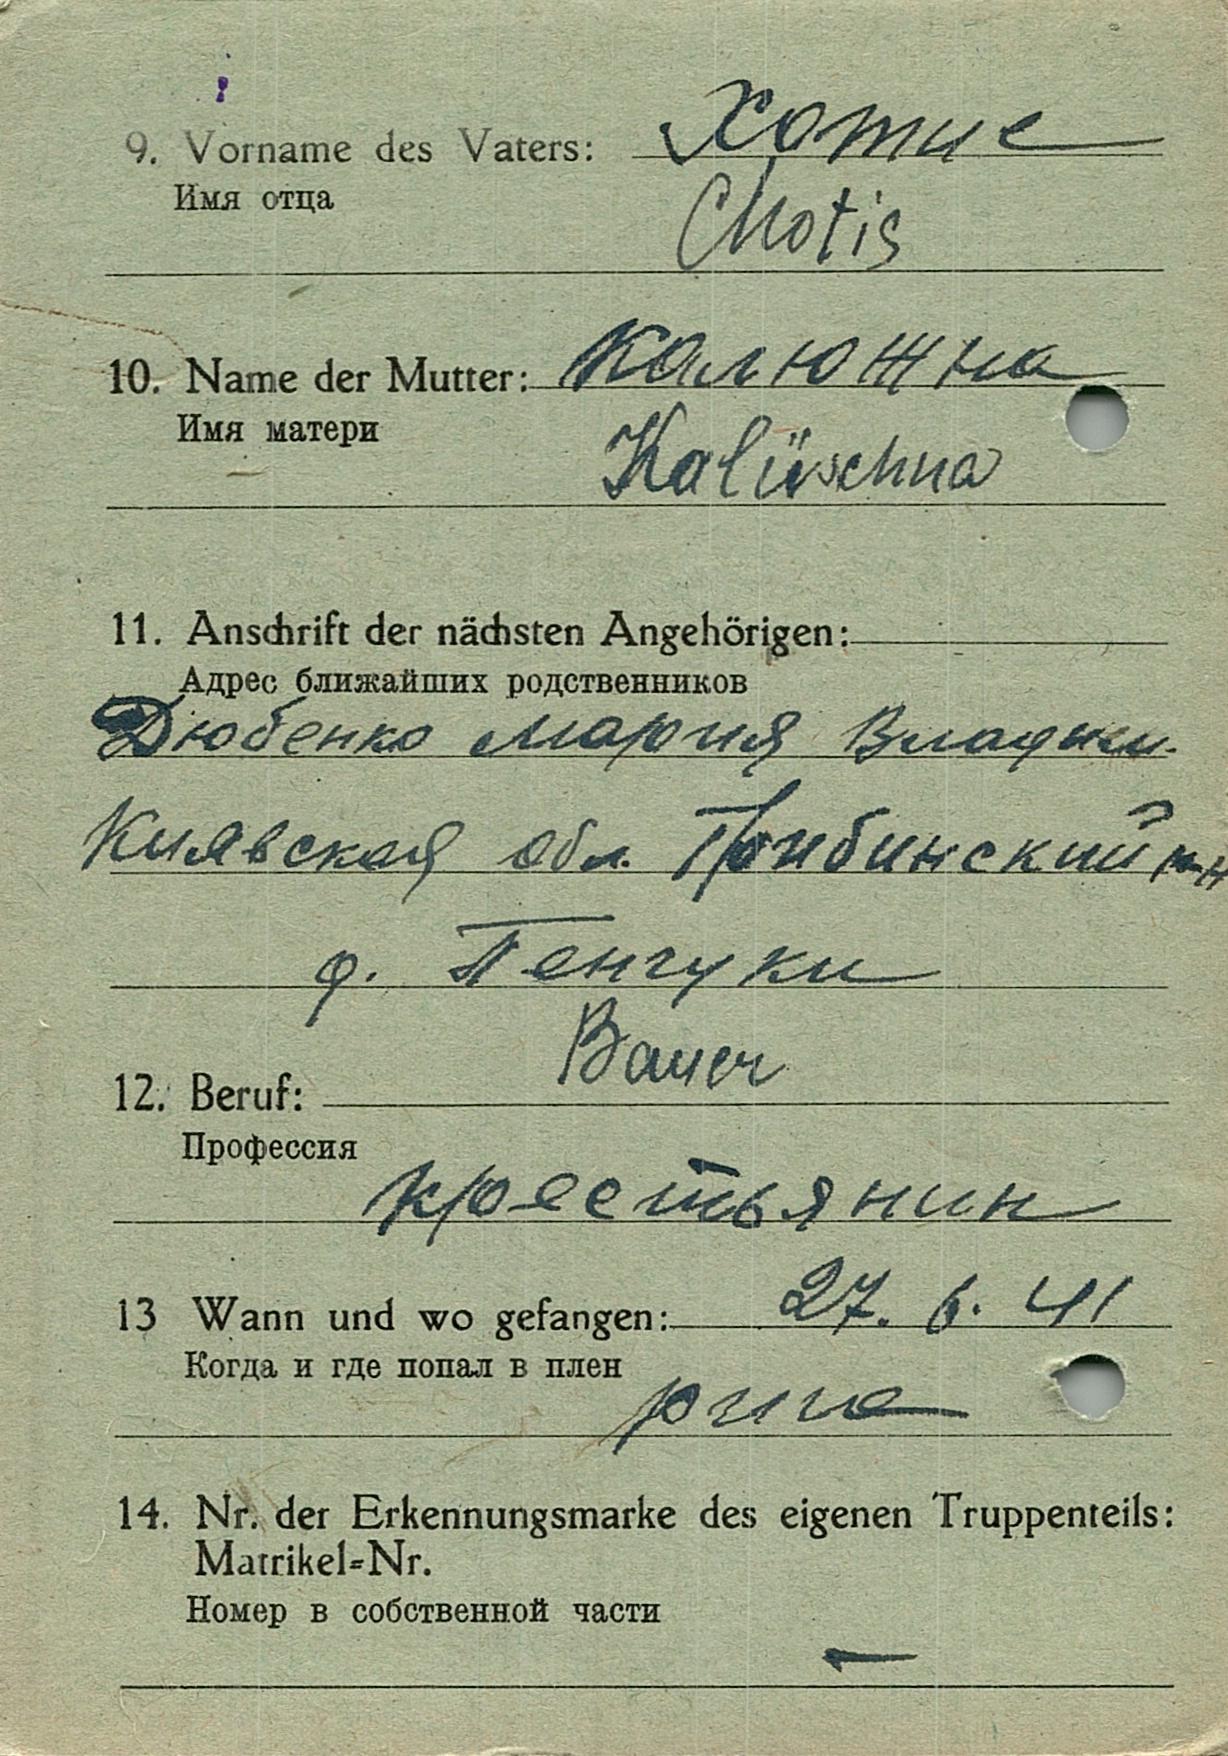 9. Vorname des Vaters: Хотис
Имя отца
Chotis
10. Name der Mutter: Калюжна
Имя матери
Kalüschna
11. Anschrift der nächsten Angehörigen:
Адрес ближайших родственников
Дюбенко Мария Владим.
Киявская обл. Грибинский р-н
д. Пенгуки
Bauer
12. Beruf:
Профессия
крестьянин
13 Wann und wo gefangen: 27. 6. 41
Когда и где попал в плен
рига
14. Nr. der Erkennungsmarke des eigenen Truppenteils:
Matrikel=Nr.
Номер в собственной части
—